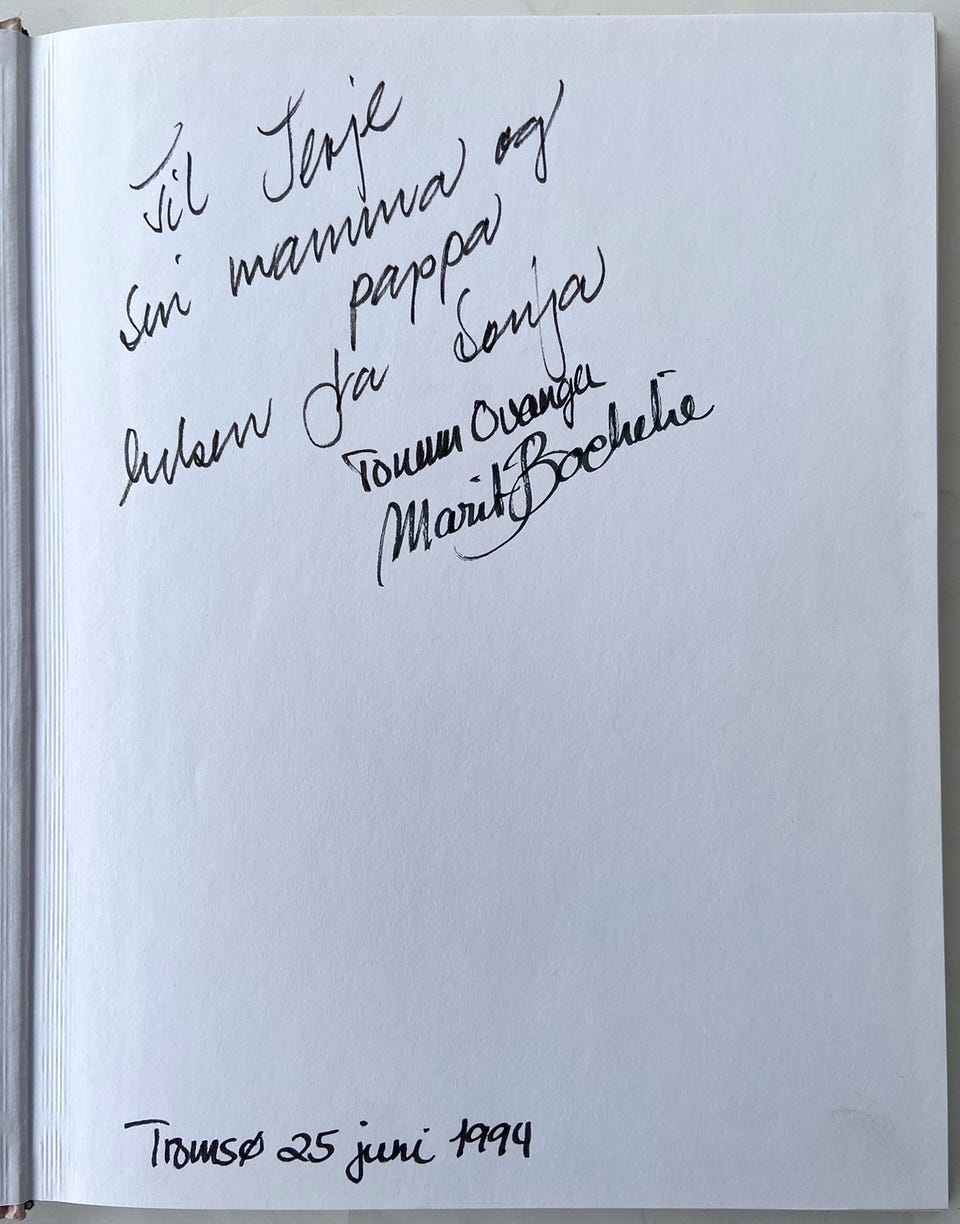 Til Terje
sin mamma og
pappa
hilsen fra Sonja
Marit Bochelie
Tromsø 25 juni 1994